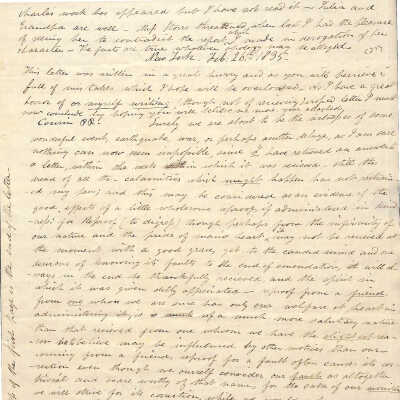 Charles work has appeared but I have not read it — Julia and
Grandpa are well — Mrs Storrs threatened when last I had the pleasure
of seeing her to contradict the report which I made in derogation of her
character — The facts are true whatever apology may be alleged.
New York Feb. 20th 1835.
This letter was written in a great hurry and as you will perceive is
full of mistakes which I hope will be overlooked. As I have a great
horror of my writing though out of necessity, letter I must
now conclude hoping you will write me more
Cousin Surely we are about to be the witnesses of some
wonderful event, earthquake, war, or perhaps another deluge, as I am sure
nothing can now seem impossible, since I have returned an answer to
a letter within the week in which it was received. Still the
dread of all the calamities which might happen has not restrain-
ed my pen, and this may be considered as an evidence of the
good effects of a little wholesome reproof if administered in kind-
ness; (a Reproof, to digress) though perhaps from the infirmity of
our nature and the pride of man's heart, may not be received at
the moment with a good grace, yet to the candid mind and one
desirous of knowing its faults to the end of emendation, it will al-
ways in the end be thankfully received and the spirit in
which it was given duly appreciated — reproof from a friend,
from one whom we are sure has only our welfare at heart in
administering it, is a much more salutary nature
than that received from one whom we have the slightest rea-
son to believe may be influenced by other motives than our
coming from a friend, reproof for a fault often causes its cor-
rection even though we ourself consider our fault as altogether
trivial and scarce worthy of that name, for the sake of our
we will strive for its correction while
of the first page is the end of the letter.